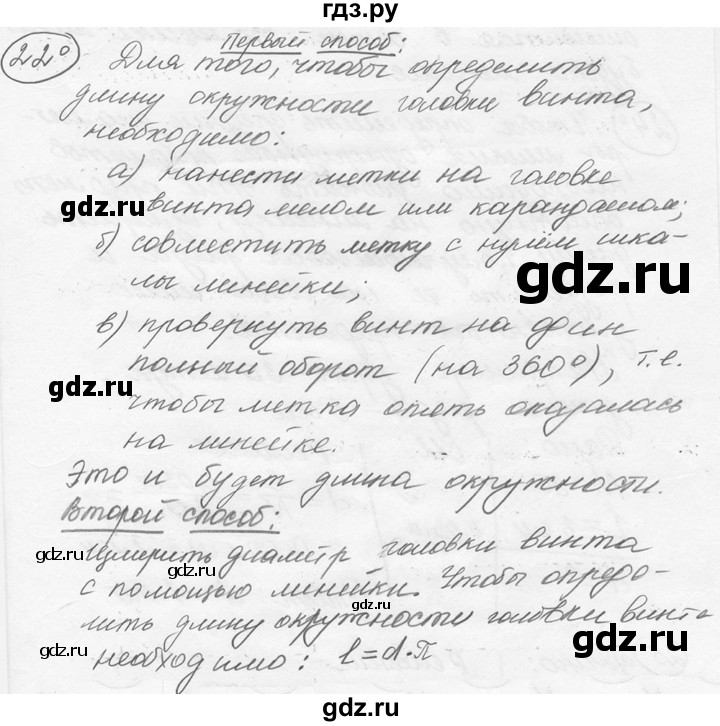 гдз.ру
22°
Первый способ:
Для того, чтобы определить
длину окружности головки винта,
необходимо:
а) нанести метки на головке
gdz.ru
винта мелом или карандашом;
б) совместить метку с нулём шка-
gdz.ru
лы линейки;
в) провернуть винт на один
полный оборот (на 360°), т.е.
gdz.ru
чтобы метка опять оказалась
на линейке.
Это и будет длина окружности.
Второй способ:
gdz.ru
Измерить диаметр головки винта
с помощью линейки. Чтобы опреде-
gdz.ru
лить длину окружности головки винта
gdz.ru
необходимо: l=d·π
gdz.ru
gdz.ru